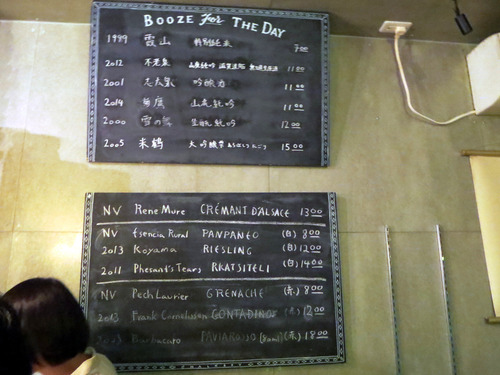 BOOZE for THE DAY
1999 霞山 特別純米 700
2012 不老泉 山廃純吟 滋賀渡船 1100
2001 吟醸 1100
2014 山廃純吟 1100
2000 雪の 生酛純吟 1200
2005 米鶴 大吟醸 1500
NV Rene Mure CRÉMANT D'ALSACE 1300
NV Esencia Rural PANPANEO (白) 800
2013 Koyama RIESLING (白) 1200
2011 Phesant's Tears RKATSITELI (白) 1400
NV Pech Laurier GRENACHE (赤) 800
2013 Frank Cornelissen CONTADINO (赤) 1200
Barbacarlo (赤) 1800